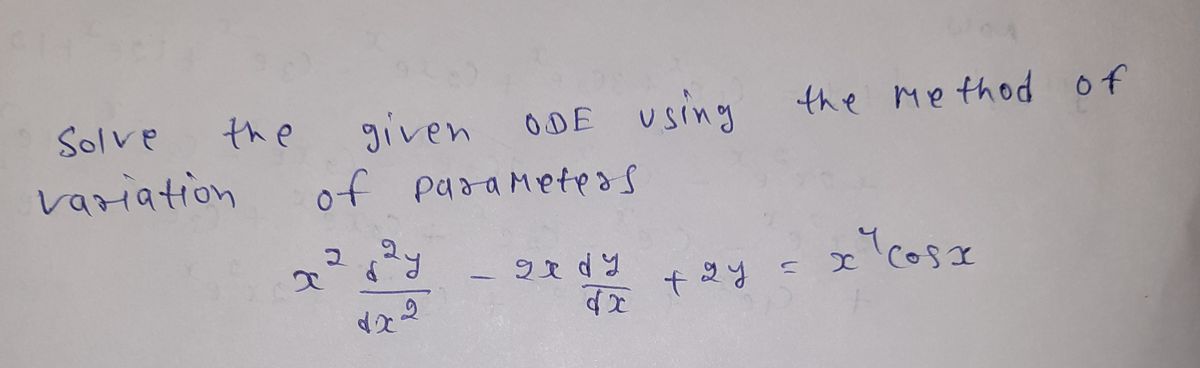 Solve the given ODE using the method of
variation of parameters
x² d²y/dx² - 2x dy/dx + 2y = x⁴cosx